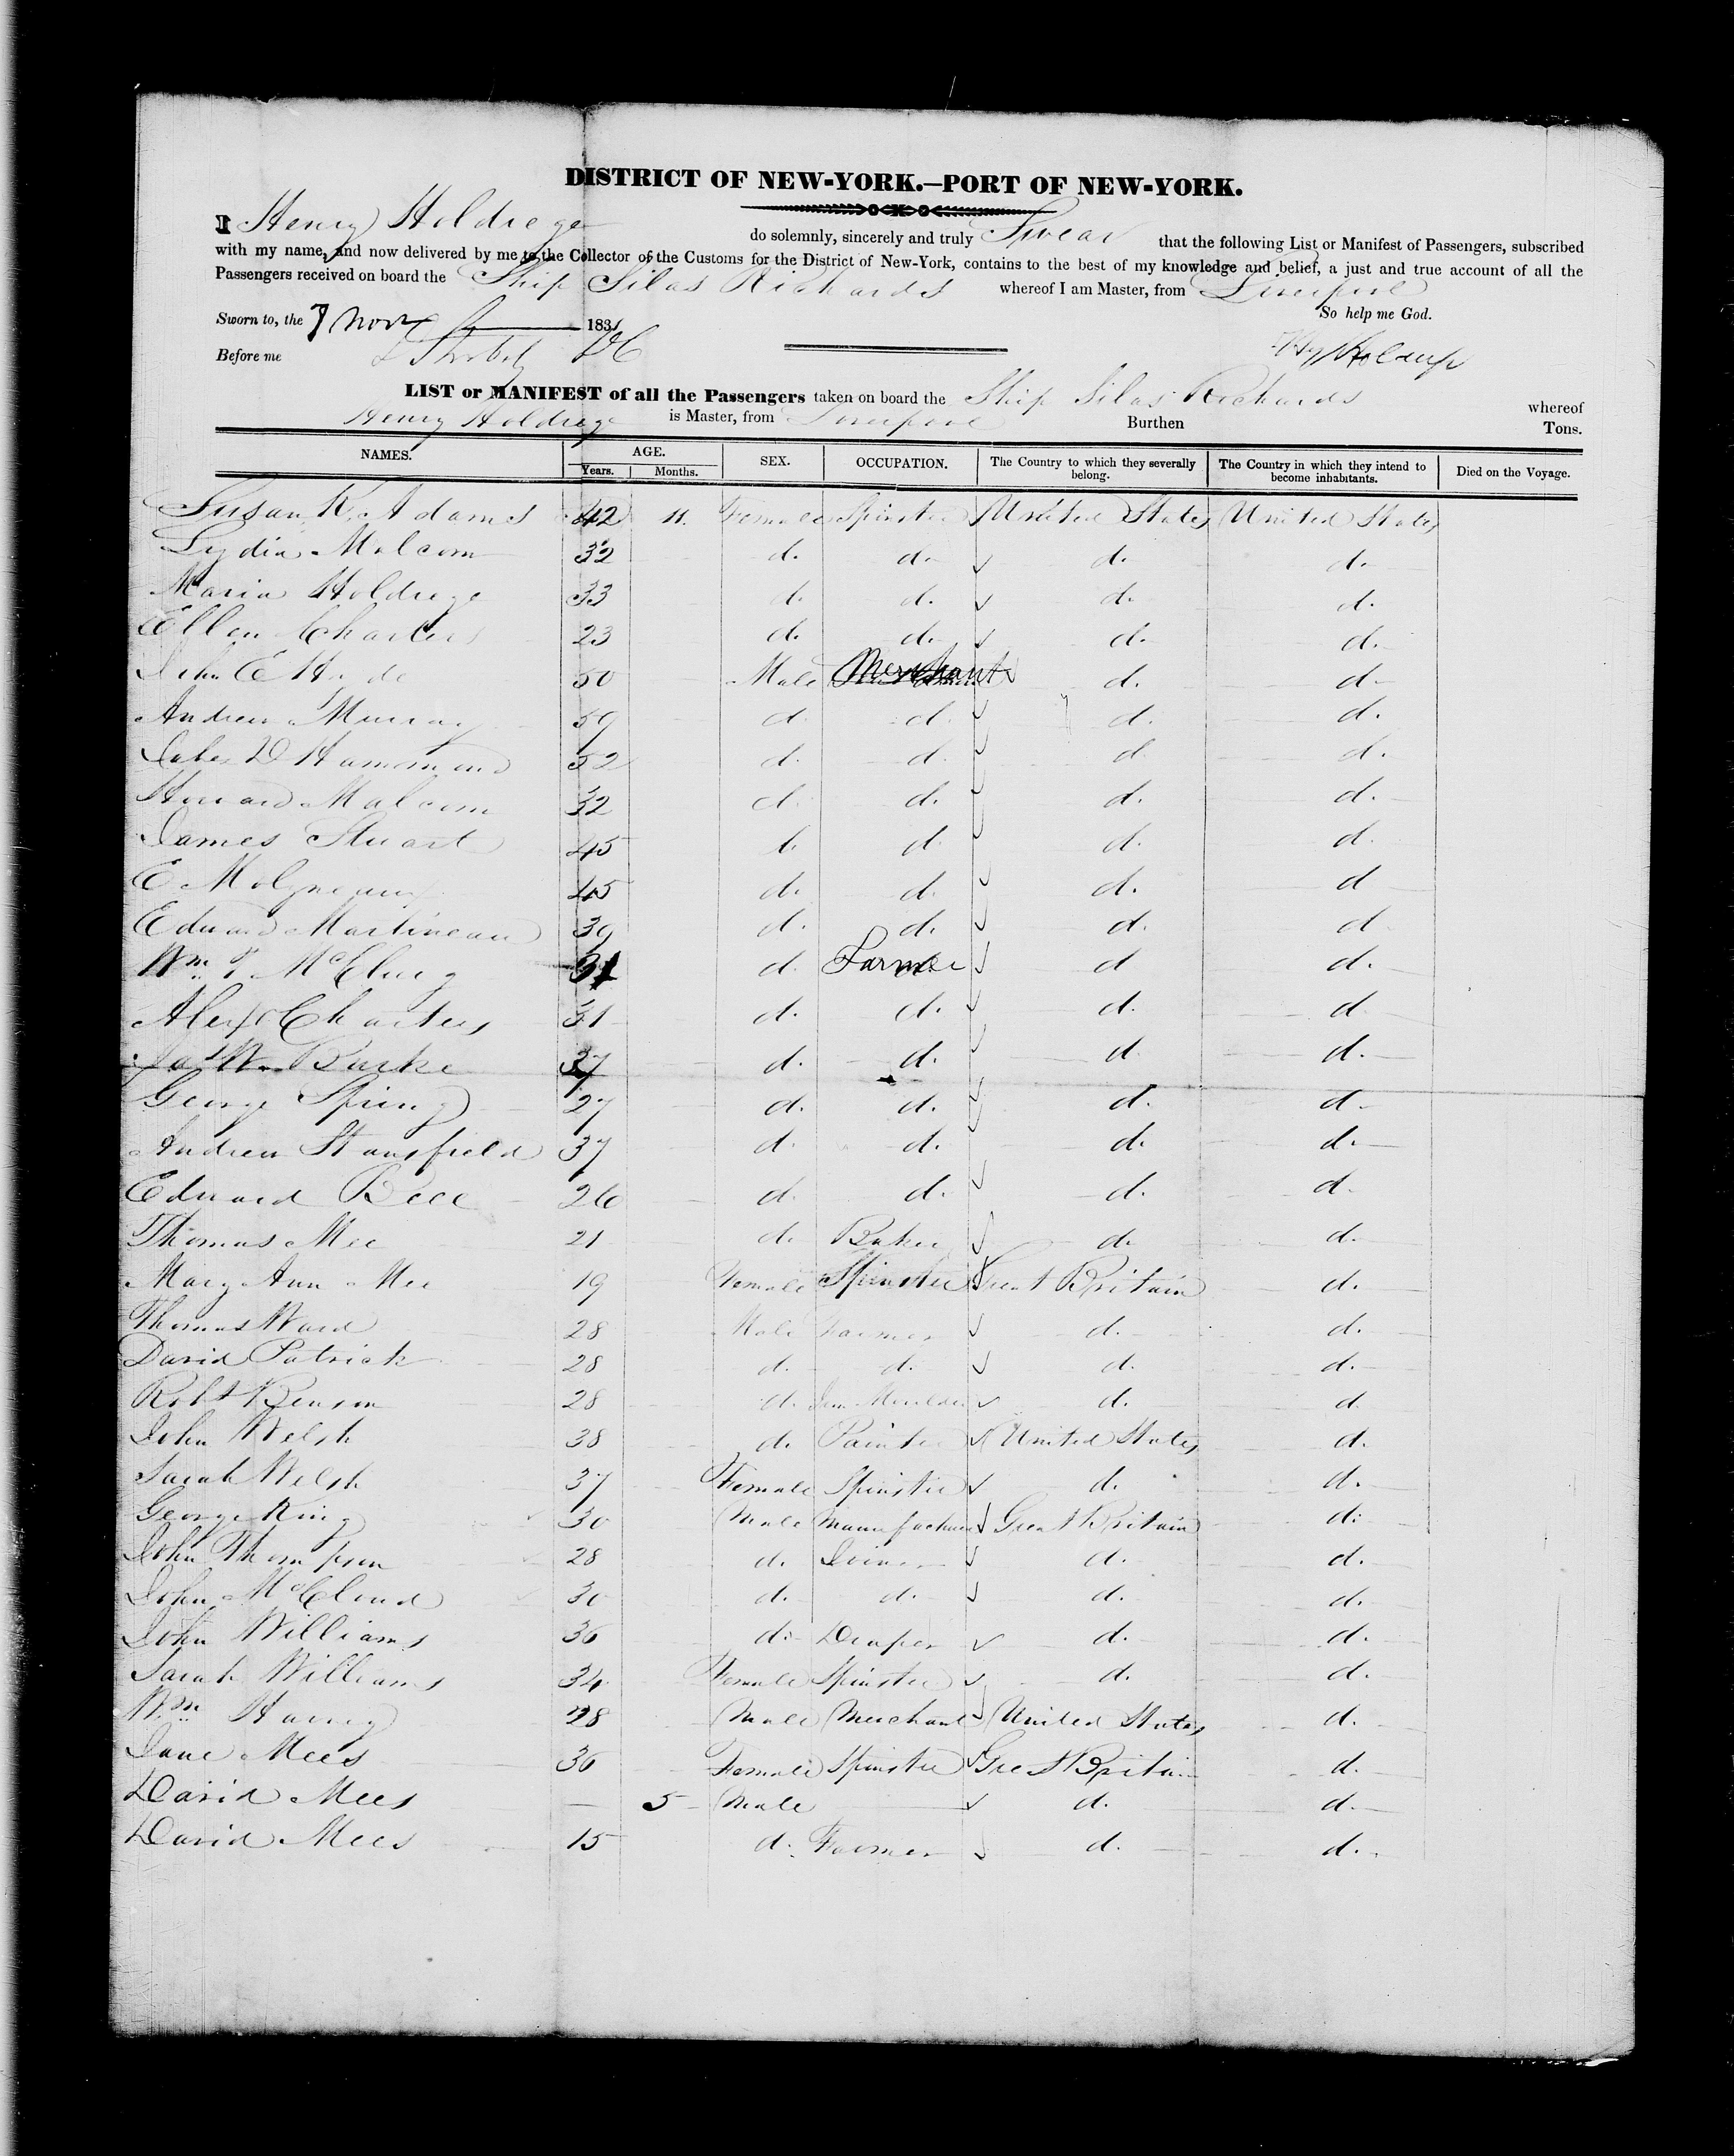 DISTRICT OF NEW-YORK.—PORT OF NEW-YORK.
I Henry Holdrege do solemnly, sincerely and truly Swear that the following List or Manifest of Passengers, subscribed
with my name, and now delivered by me to the Collector of the Customs for the District of New-York, contains to the best of my knowledge and belief, a just and true account of all the
Passengers received on board the Ship Silas Richards whereof I am Master, from Liverpool
So help me God.
Sworn to, the 7 Novr 1831
Before me
LIST or MANIFEST of all the Passengers taken on board the Ship Silas Richards whereof
Henry Holdrege is Master, from Liverpool Burthen Tons.
NAMES. AGE. SEX. OCCUPATION. The Country to which they severally belong. The Country in which they intend to become inhabitants. Died on the Voyage.
Years. Months.
Susan K. Adams 42 11. Female Spinster United States United States
Lydia Malcom 32 d. d. d. d.
Maria Holdrege 33 d. d. d. d.
Ellen Charters 23 d. d. d. d.
John E Hyde 50 Male Merchant d. d.
Andrew Murray 59 d. d. d. d.
Jabez D Hammond 52 d. d. d. d.
Howard Malcom 32 d. d. d. d.
James Stuart 45 d. d. d. d.
E Molyneaux 45 d. d. d. d
Edward Martineau 39 d. d. d. d
Wm McClurg 31 d. Farmer d d.
Alexr Charters 31 d. d. d. d
Jas Wm Burke 37 d. d. d. d.
George Spring 27 d. d. d. d.
Andrew Stansfield 37 d. d. d. d.
Edward Rece 26 d. d. d. d.
Thomas Mee 21 d. Baker d. d.
Mary Ann Mee 19 Female Spinster Great Britain d.
Thomas Ward 28 Male Farmer d. d.
David Patrick 28 d. d. d. d.
Robt Benson 28 d. Iron Moulder d. d.
John Welsh 38 d. Painter United States d.
Sarah Welsh 37 Female Spinster d. d.
George King 30 Male Manufacturer Great Britain d.
John Thompson 28 d. Joiner d. d.
John McCloud 30 d. d. d. d.
John Williams 36 d. Draper d. d.
Sarah Williams 34 Female Spinster d. d.
Wm Harvey 28 Male Merchant United States d.
Jane Mees 36 Female Spinster Great Britain d.
David Mees — 5 Male d. d.
David Mees 15 d. Farmer d. d.